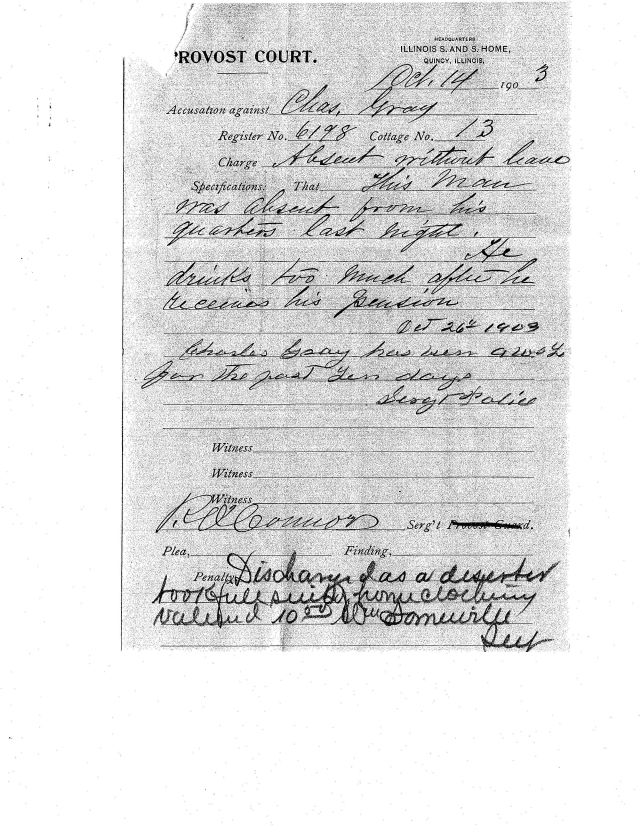 HEADQUARTERS
ILLINOIS S. AND S. HOME,
QUINCY, ILLINOIS,
PROVOST COURT.
Oct. 14 1903
Accusation against Chas. Gray
Register No. 6198 Cottage No. 13
Charge Absent without leave
Specifications: That This Man
was absent from his
quarters last night.
He
drinks too much after he
receives his Pension
Oct 26th 1903
Charles Gray has been awol
for the past Ten days
Sergt Police
Witness
Witness
Witness
P. O'Connor Serg't Provost Guard.
Plea, Finding,
Penalty, Discharged as a deserter
took full suit of home clothing
valued 10 00 Wm Somerville
Supt